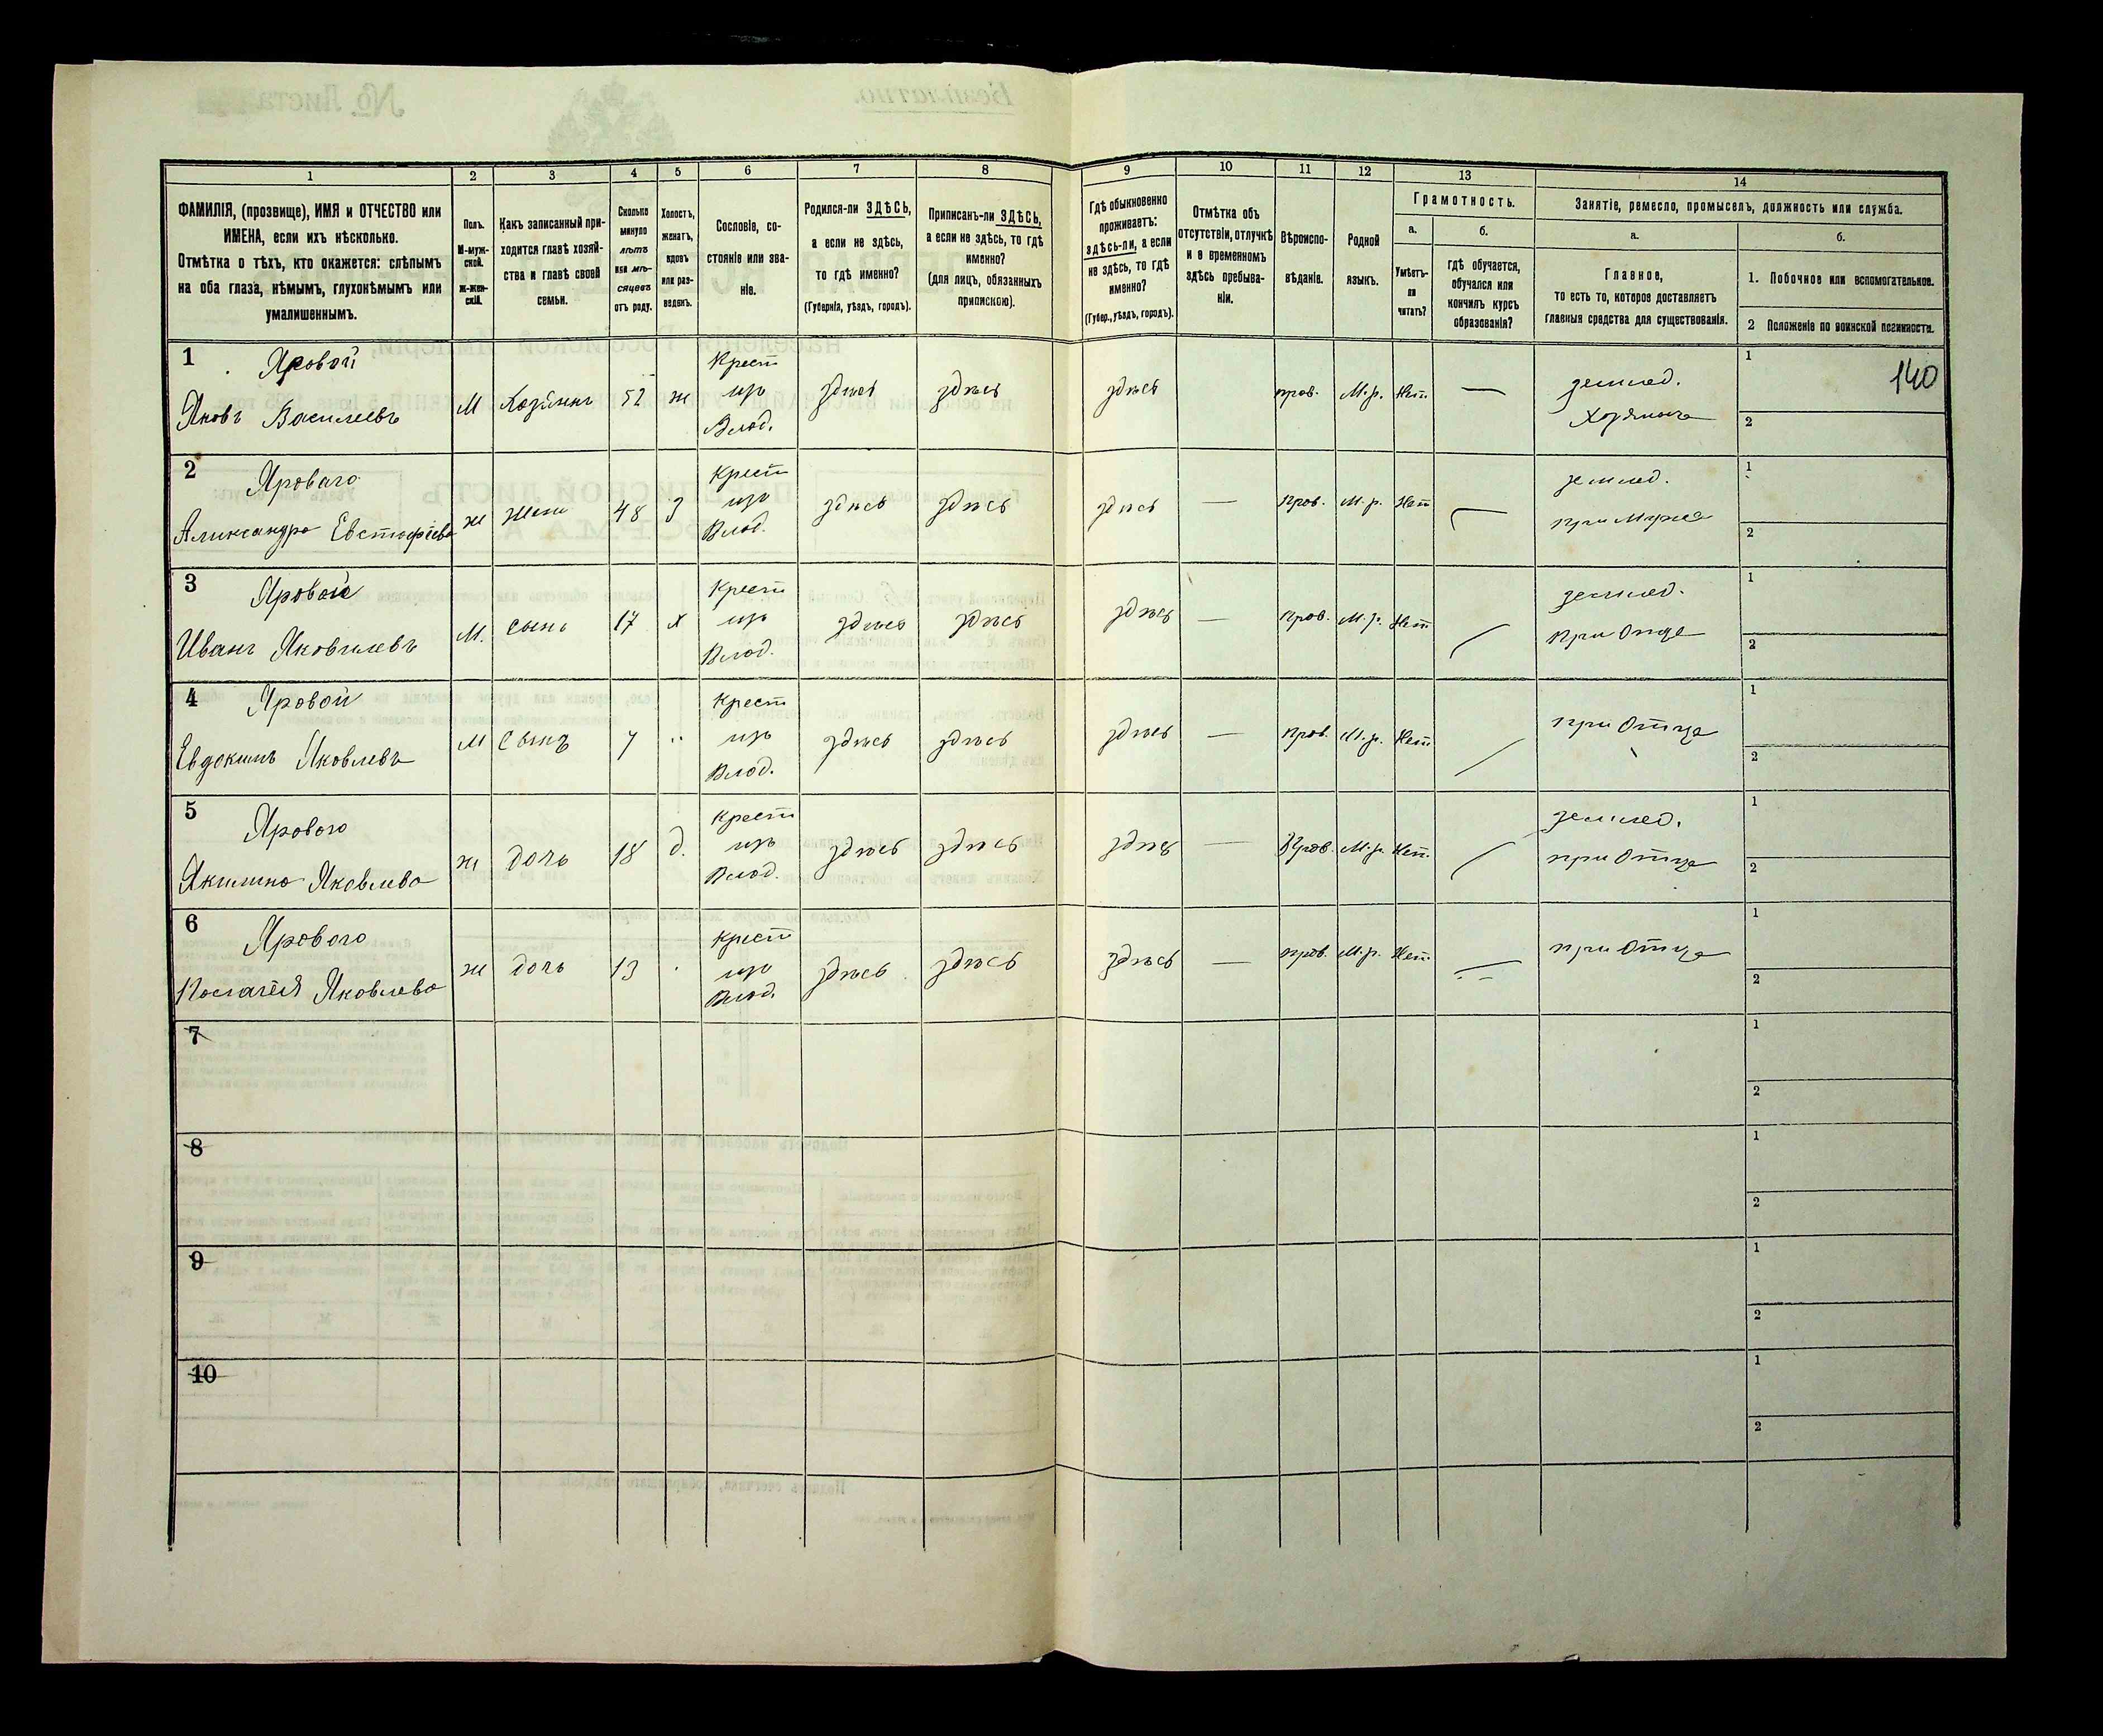 1 2 3 4 5 6 7 8 9 10 11 12 13 14
ФАМИЛІЯ, (прозвище), ИМЯ и ОТЧЕСТВО или
ИМЕНА, если ихъ нѣсколько.
Отмѣтка о тѣхъ, кто окажется: слѣпымъ
на оба глаза, нѣмымъ, глухонѣмымъ или
умалишеннымъ.
Полъ.
М-муж-
ской.
Ж-жен-
скій.
Какъ записанный при-
ходится главѣ хозяй-
ства и главѣ своей
семьи.
Сколько
минуло
лѣтъ
или мѣ-
сяцевъ
отъ роду.
Холостъ,
женатъ,
вдовъ
или раз-
веденъ.
Сословіе, со-
стояніе или зва-
ніе.
Родился-ли ЗДѢСЬ,
а если не здѣсь,
то гдѣ именно?
(Губернія, уѣздъ, городъ).
Приписанъ-ли ЗДѢСЬ,
а если не здѣсь, то гдѣ
именно?
(для лицъ, обязанныхъ
припискою).
Гдѣ обыкновенно
проживаетъ:
здѣсь-ли, а если
не здѣсь, то гдѣ
именно?
(Губер., уѣздъ, городъ).
Отмѣтка объ
отсутствіи, отлучкѣ
и о временномъ
здѣсь пребыва-
ніи.
Вѣроиспо-
вѣданіе.
Родной
языкъ.
Грамотность.
а.
Умѣетъ-
ли
читать?
б.
гдѣ обучается,
обучался или
кончилъ курсъ
образованія?
Занятіе, ремесло, промыселъ, должность или служба.
а.
Главное,
то есть то, которое доставляетъ
главныя средства для существованія.
б.
1. Побочное или вспомогательное.
2 Положеніе по воинской повинности.
140
1 Яровой Крест землед. 1
Яковъ Васильевъ М Хозяинъ 52 ж изъ здѣсь здѣсь здѣсь прав. М.р. Нет — Хозяинъ
Влад. 2
2 Яроваго Крест землед. 1
Александра Евстафіева ж жена 48 З изъ здѣсь здѣсь здѣсь — прав. М.р. Нет при Мужа
Влад. 2
3 Яровой Крест землед. 1
Иванъ Яковлевъ М. сынъ 17 х изъ здѣсь здѣсь здѣсь — прав. М.р. Нет при Отца
Влад. 2
4 Яровой Крест 1
Евдокимъ Яковлевъ М Сынъ 7 изъ здѣсь здѣсь здѣсь — прав. М.р. Нет при Отца
Влад. 2
5 Ярового Крест землед. 1
Акилина Яковлева ж дочь 18 д. изъ здѣсь здѣсь здѣсь — Прав. М.р. Нет. при Отца
Влад. 2
6 Ярового Крест 1
Пелагея Яковлева ж дочь 13 изъ здѣсь здѣсь здѣсь — прав. М.р. Нет при Отца
Влад. 2
7 1
2
8 1
2
9 1
2
10 1
2